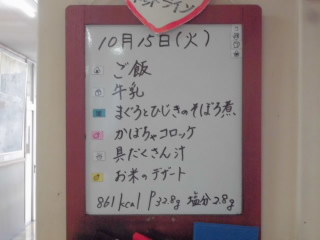 10月15日(火)
ご飯
牛乳
まぐろとひじきのそぼろ煮、
かぼちゃコロッケ
具だくさん汁
お米のデザート
861kcal P32.8g 塩分2.8g